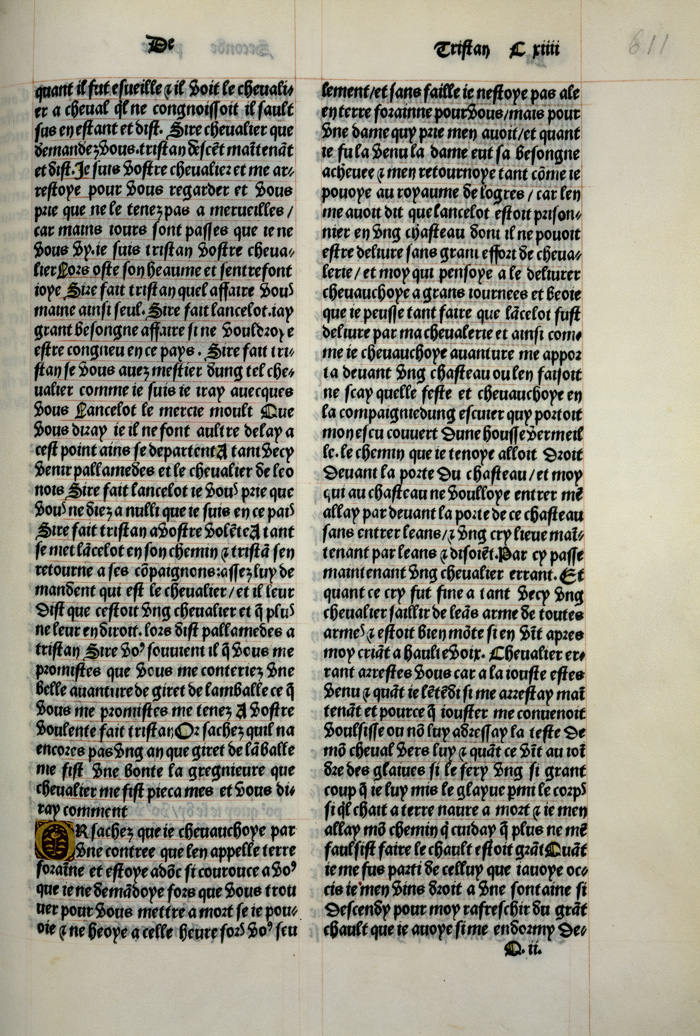 De
Tristan C xiiii
611
quant il fut esueille ⁊ il voit le cheuali⸗
er a cheual q̃l ne congnoissoit il sault
sus en estant et dist. Sire cheualier que
demandez vous.tristan descẽt maĩtenãt
et dist.Je suis vostre cheualier et me ar⸗
restoye pour vous regarder et vous
prie que ne le tenez pas a merueilles /
car mains iours sont passes que ie ne
vous vy.ie suis tristan vostre cheua⸗
lier Lors oste son heaume et sentrefont
ioye Sire fait tristan quel affaire voꝰ
maine ainsi seul. Sire fait lancelot.iay
grant besongne affaire si ne vouldroye
estre congneu en ce pays . Sire fait tri⸗
stan se vous auez mestier dung tel che⸗
ualier comme ie suis ie iray auecques
vous Lancelot le mercie moult Que
vous diray ie il ne font aultre delay a
cest point ains se departent A tant vecy
venir pallamedes et le cheualier de leo
nois Sire fait lancelot ie voꝰ prie que
voꝰ ne diez a nulli que ie suis en ce paiꝰ
Sire fait tristan a vostre volẽte A tant
se met lãcelot en son chemin ⁊ tristã sen
retourne a ses cõpaignons:assez luy de
mandent qui est le cheualier/et il leur
dist que cestoit vng cheualier et q̃ pluꝰ
ne leur en diroit. lors dist pallamedes a
tristan Sire voꝰ souuient il q̃ vous me
promistes que vous me conteriez vne
belle auanture de giret de lamballe ce q̃
vous me promistes me tenez A vostre
voulente fait tristan Or sachez quil na
encores pas vng an que giret de lãballe
me fist vne bonte la gregnieure que
cheualier me fist pieca mes et vous di⸗
ray comment
OR sachez que ie cheuauchoye par
vne contree que len appelle terre
foraine et estoye adõc si courouce a voꝰ
que ie ne demãdoye fors que vous trou
uer pour vous mettre a mort se ie pou⸗
oie ⁊ ne beoye a celle heure forꝰ voꝰ seu
lement/et sans faille ie nestoye pas ale
en terre forainne pour vous/mais pour
vne dame quy prie men auoit/et quant
ie fu la venu la dame eut sa besongne
acheuee ⁊ men retournoye tant cõme ie
pouoye au royaume de logres / car len
me auoit dit que lancelot estoit prison⸗
nier en vng chasteau dont il ne pouoit
estre deliure sans grant effort de cheua⸗
lerie / et moy qui pensoye a le deliurer
cheuauchoye a grans iournees et beoie
que ie peusse tant faire que lãcelot fust
deliure par ma cheualerie et ainsi com⸗
me ie cheuauchoye auanture me appor
ta deuant vng chasteau ou len faisoit
ne scay quelle feste et cheuauchoye en
la compaigniedung escuier quy portoit
mon escu couuert dune housse vermeil
le. le chemin que ie tenoye alloit droit
deuant la porte du chasteau / et moy
qui au chasteau ne voulloye entrer mẽ
allay par deuant la porte de ce chasteau
sans entrer leans/⁊ vng cry lieue mai⸗
tenant par leans ⁊ disoiẽt.Par cy passe
maintenant vng cheualier errant. Et
quant ce cry fut fine a tant vecy vng
cheualier saillir de leãs arme de toutes
armeꝰ ⁊ estoit bien mõte si en vĩt apres
moy criãt a haulte voix. Cheualier er⸗
rant arrestes vous car a la iouste estes
venu ⁊ quãt ie lẽtẽdi si me arrestay maĩ
tenãt et pource q̃ iouster me conuenoit
voulsisse ou nõ luy adressay la teste de
mõ cheual vers luy ⁊ quãt ce vĩt au ioĩ
dre des glaiues si le fery vng si grant
coup q̃ ie luy mis le glayue p̃mi le corpꝰ
si q̃l chait a terre naure a mort ⁊ ie men
allay mõ chemin q̃ cuiday q̃ plus ne mẽ
faulsist faire le chault estoit grãt Quãt
ie me fus parti de celluy que iauoye oc⸗
cis ie men vins droit a vne fontaine si
descendy pour moy rafreschir du grãt
chault que ie auoye si me endormy de⸗
Q. ii.